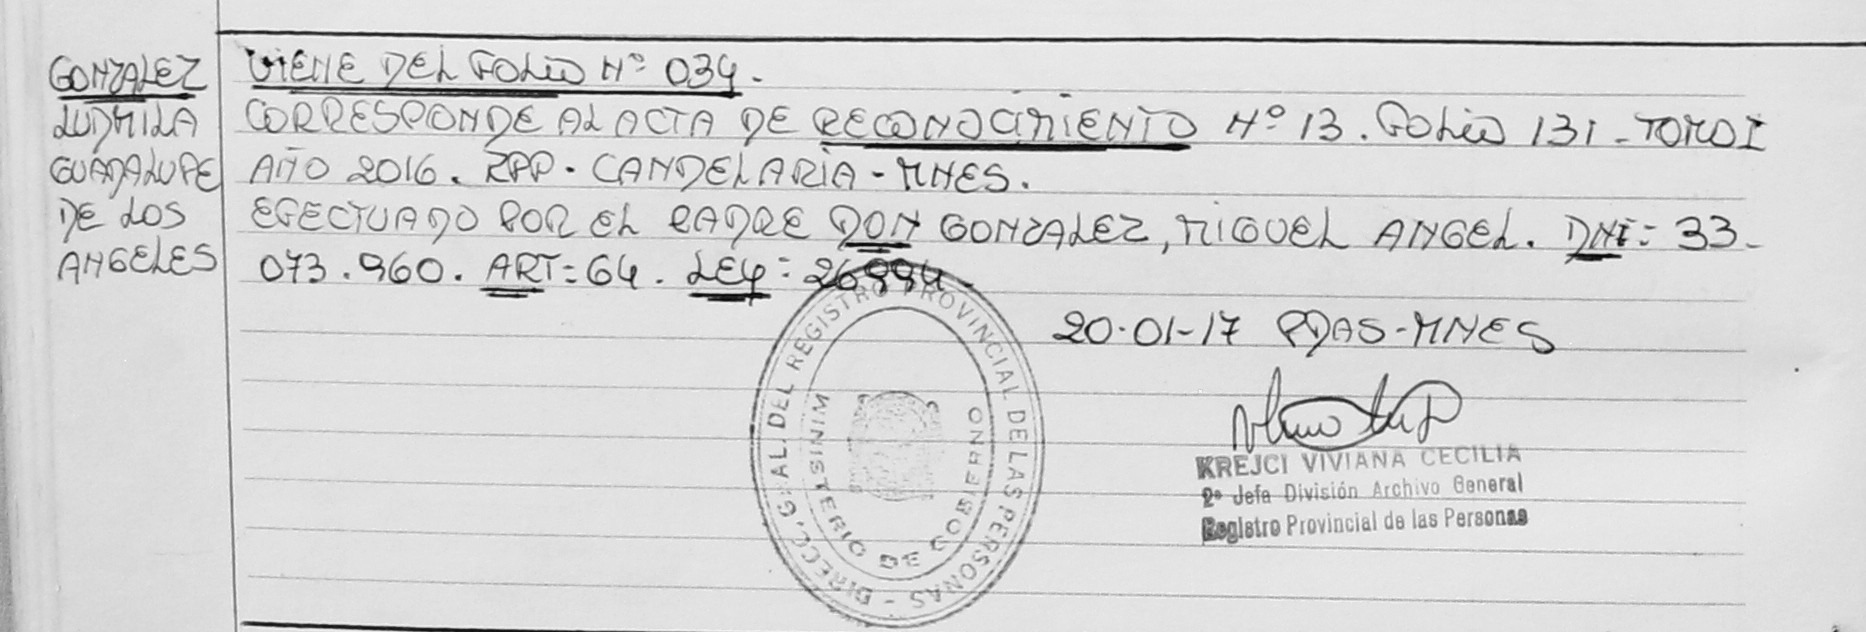 GONZALEZ
LUDMILA
GUADALUPE
DE LOS
ANGELES
VIENE DEL FOLIO Nº 034.
CORRESPONDE AL ACTA DE RECONOCIMIENTO Nº 13. FOLIO 131 - TOMO I
AÑO 2016. RPP. CANDELARIA - MNES.
EFECTUADO POR EL PADRE DON GONZALEZ, MIGUEL ANGEL. DNI: 33-
073.960. ART: 64. LEY: 26994.
20-01-17 PDAS-MNES
DIRECC. GRAL. DEL REGISTRO PROVINCIAL DE LAS PERSONAS -
MINISTERIO DE GOBIERNO
KREJCI VIVIANA CECILIA
2º Jefa División Archivo General
Registro Provincial de las Personas